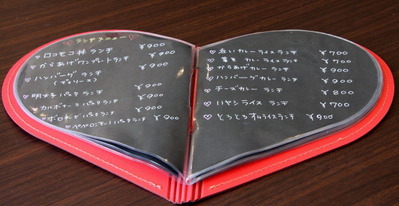 ♡ランチメニュー♡
♡ロコモコ丼 ランチ ¥900
♡からあげワンプレートランチ ¥900
♡ハンバーグ ランチ ¥900
♡明太子 パスタランチ ¥900
♡カルボナーラ パスタランチ ¥900
♡ボロネーゼ パスタランチ ¥900
パスタランチ ¥900
♡赤いカレーライス ランチ ¥700
カレーライス ランチ ¥700
♡からあげ カレー ランチ ¥900
♡ハンバーグ カレー ランチ ¥900
♡チーズカレー ランチ ¥800
♡ハヤシライス ランチ ¥700
♡とろとろ オムライスランチ ¥900